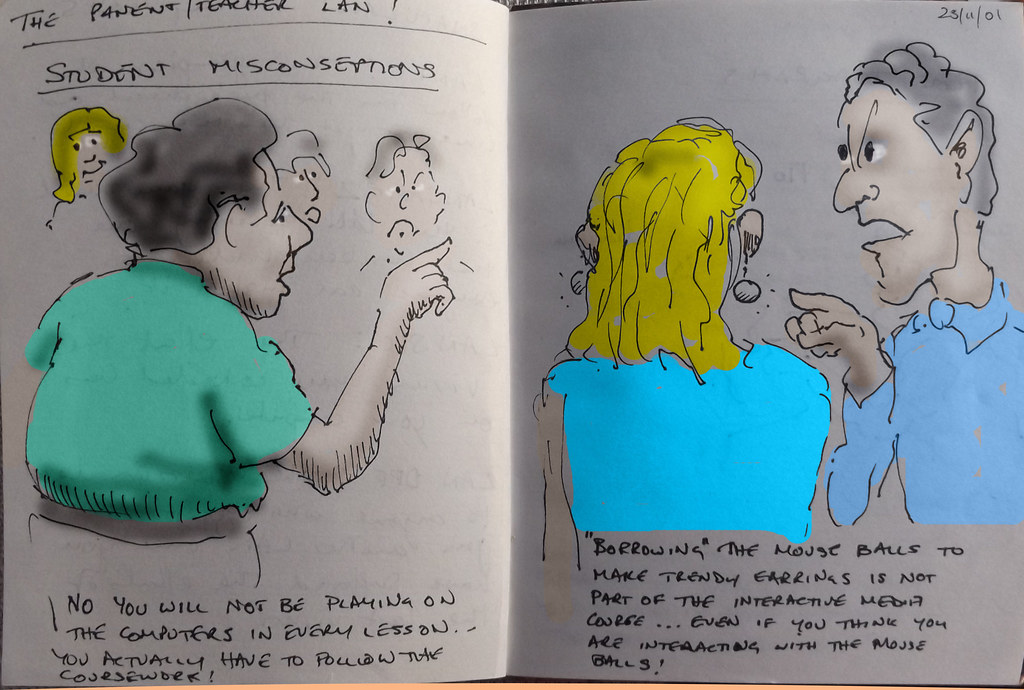 THE PARENT/TEACHER LAN!
STUDENT MISCONSEPTIONS
NO YOU WILL NOT BE PLAYING ON
THE COMPUTERS IN EVERY LESSON...
YOU ACTUALLY HAVE TO FOLLOW THE
COURSEWORK!
23/11/01
"BORROWING" THE MOUSE BALLS TO
MAKE TRENDY EARRINGS IS NOT
PART OF THE INTERACTIVE MEDIA
COURSE... EVEN IF YOU THINK YOU
ARE INTERACTING WITH THE MOUSE
BALLS!